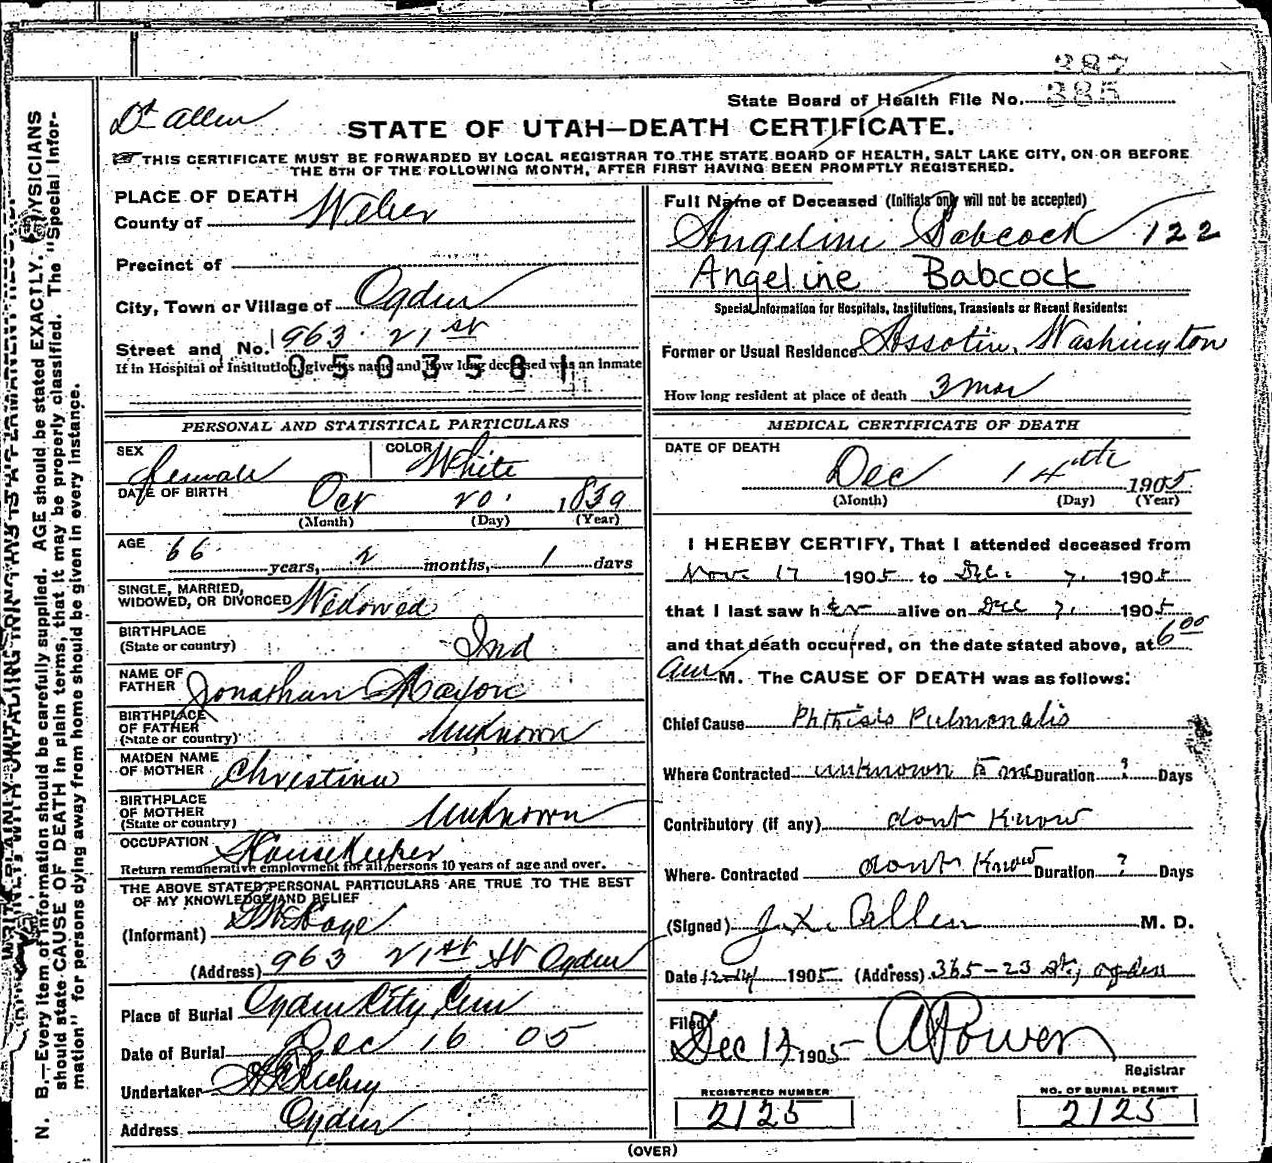 387
State Board of Health File No. 385
Dr Allen
STATE OF UTAH—DEATH CERTIFICATE.
THIS CERTIFICATE MUST BE FORWARDED BY LOCAL REGISTRAR TO THE STATE BOARD OF HEALTH, SALT LAKE CITY, ON OR BEFORE
THE 5TH OF THE FOLLOWING MONTH, AFTER FIRST HAVING BEEN PROMPTLY REGISTERED.
PLACE OF DEATH
County of Weber
Precinct of
City, Town or Village of Ogden
Street and No. 963 21st
0503581
If in Hospital or Institution, give its name and how long deceased was an inmate
PERSONAL AND STATISTICAL PARTICULARS
SEX female COLOR White
DATE OF BIRTH Oct 20. 1839
(Month) (Day) (Year)
AGE 66 years, 2 months, 1 days
SINGLE, MARRIED,
WIDOWED, OR DIVORCED Widowed
BIRTHPLACE
(State or country) Ind
NAME OF
FATHER Jonathan
BIRTHPLACE
OF FATHER
(State or country) Unknown
MAIDEN NAME
OF MOTHER Christina
BIRTHPLACE
OF MOTHER
(State or country) Unknown
OCCUPATION Housekeeper
Return remunerative employment for all persons 10 years of age and over.
THE ABOVE STATED PERSONAL PARTICULARS ARE TRUE TO THE BEST
OF MY KNOWLEDGE AND BELIEF
(Informant)
(Address) 963 21st St Ogden
Place of Burial Ogden City Cem
Date of Burial Dec 16 05
Undertaker
Address Ogden
Full Name of Deceased (Initials only will not be accepted)
Angeline Babcock 122
Angeline Babcock
Special Information for Hospitals, Institutions, Transients or Recent Residents:
Former or Usual Residence Assotin, Washington
How long resident at place of death 3 mos
MEDICAL CERTIFICATE OF DEATH
DATE OF DEATH
Dec 14th 1905
(Month) (Day) (Year)
I HEREBY CERTIFY, That I attended deceased from
Nov. 17 1905 to Dec. 7. 1905
that I last saw her alive on Dec 7. 1905
and that death occurred, on the date stated above, at 6 00
am M. The CAUSE OF DEATH was as follows:
Chief Cause Phthisis Pulmonalis
Where Contracted unknown to me Duration ? Days
Contributory (if any) dont Know
Where Contracted dont Know Duration ? Days
(Signed) Allen M. D.
Date 12-14 1905 (Address) 365-23 st, Ogden
Filed Dec 1905
Registrar
REGISTERED NUMBER
2125
NO. OF BURIAL PERMIT
2125
(OVER)
N. B.—Every item of information should be carefully supplied. AGE should be stated EXACTLY. PHYSICIANS
should state CAUSE OF DEATH in plain terms, that it may be properly classified. The "Special Infor-
mation" for persons dying away from home should be given in every instance.